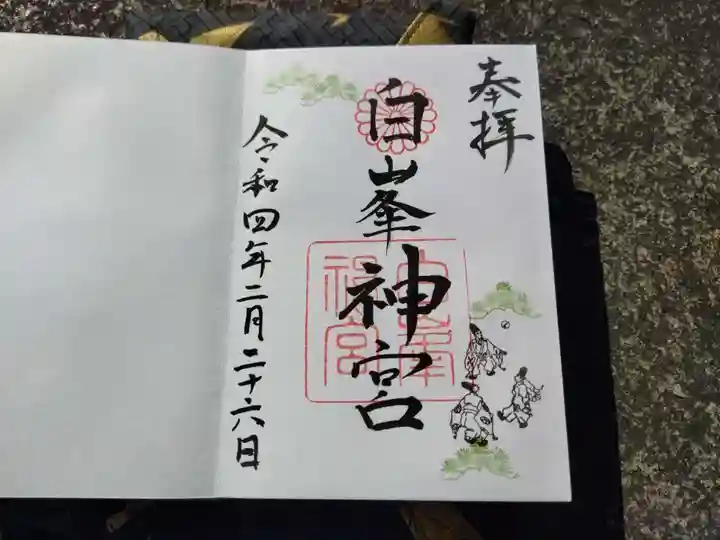 奉拝
白峯神宮
令和四年二月二十六日
白峯
神宮